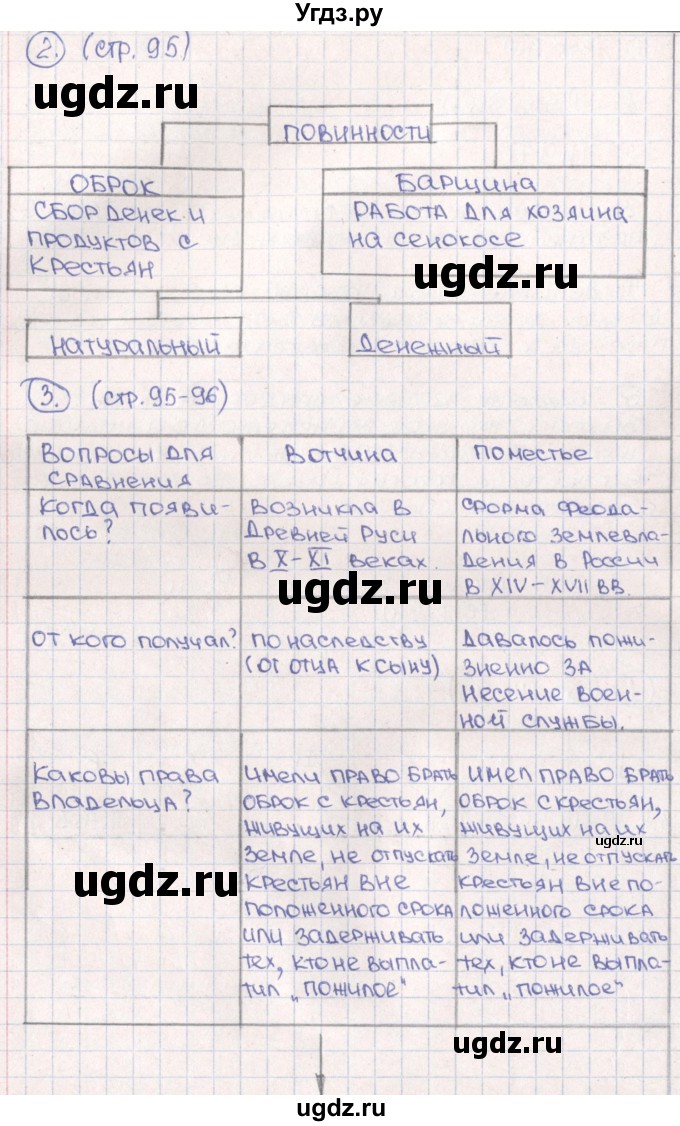 Угдз.ру
2. (стр. 95)
ugdz.ru
ПОВИННОСТИ
ОБРОК
СБОР ДЕНЕК И
ПРОДУКТОВ С
КРЕСТЬЯН
БАРЩИНА
РАБОТА ДЛЯ ХОЗЯИНА
НА СЕНОКОСЕ
ugdz.ru
НАТУРАЛЬНЫЙ
ДЕНЕЖНЫЙ
3. (стр. 95-96)
ВОПРОСЫ ДЛЯ
СРАВНЕНИЯ
ВОТЧИНА
ПОМЕСТЬЕ
КОГДА ПОЯВИ-
ЛОСЬ?
ВОЗНИКЛА В
ДРЕВНЕЙ РУСИ
В X-XI ВЕКАХ.
ФОРМА ФЕОДА-
ЛЬНОГО ЗЕМЛЕВЛА-
ДЕНИЯ В РОССИИ
В XIV-XVII ВВ.
ugdz.ru
ОТ КОГО ПОЛУЧАЛ?
ПО НАСЛЕДСТВУ
(ОТ ОТЦА К СЫНУ)
ДАВАЛОСЬ ПОЖИ-
ЗНЕННО ЗА
НЕСЕНИЕ ВОЕН-
НОЙ СЛУЖБЫ.
КАКОВЫ ПРАВА
ВЛАДЕЛЬЦА?
ИМЕЛИ ПРАВО БРАТЬ
ОБРОК С КРЕСТЬЯН,
ЖИВУЩИХ НА ИХ
ЗЕМЛЕ, НЕ ОТПУСКАТЬ
КРЕСТЬЯН ВНЕ
ПОЛОЖЕННОГО СРОКА
ИЛИ ЗАДЕРЖИВАТЬ
ТЕХ, КТО НЕ ВЫПЛА-
ТИЛ „ПОЖИЛОЕ"
ИМЕЛ ПРАВО БРАТЬ
ОБРОК С КРЕСТЬЯН,
ЖИВУЩИХ НА ИХ
ЗЕМЛЕ, НЕ ОТПУСКАТЬ
КРЕСТЬЯН ВНЕ ПО-
ЛОЖЕННОГО СРОКА
ИЛИ ЗАДЕРЖИВАТЬ
ТЕХ, КТО НЕ ВЫПЛА-
ТИЛ „ПОЖИЛОЕ"
ugdz.ru
ugdz.ru
ugdz.ru
ugdz.ru